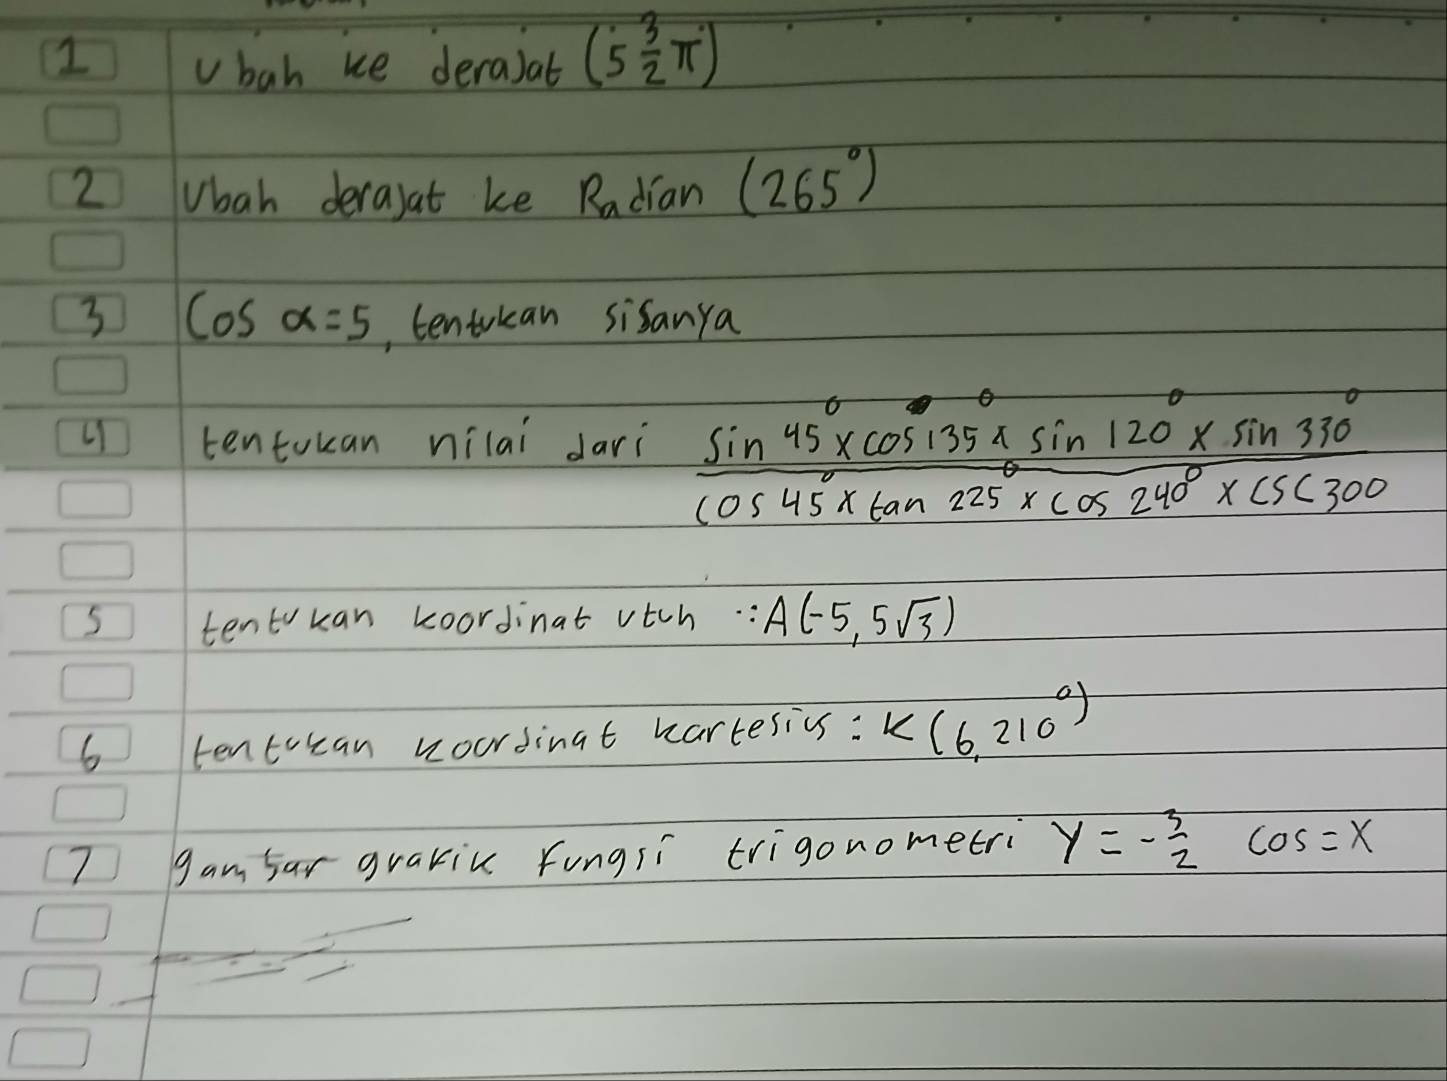 1 Ubah ke derajat (5 3/2 π)
2 Ubah derajat ke Radian (265°)
3 Cos α = 5, tentukan sisanya
4 tentukan nilai dari sin 45° x cos 135° x sin 120° x sin 330°
cos 45° x tan 225° x cos 240° x csc 300
5 tentukan koordinat utuh : A(-5, 5√3)
6 tentukan koordinat kartesius : K (6, 210°)
7 gambar grafik fungsi trigonometri Y = -3/2 cos = X